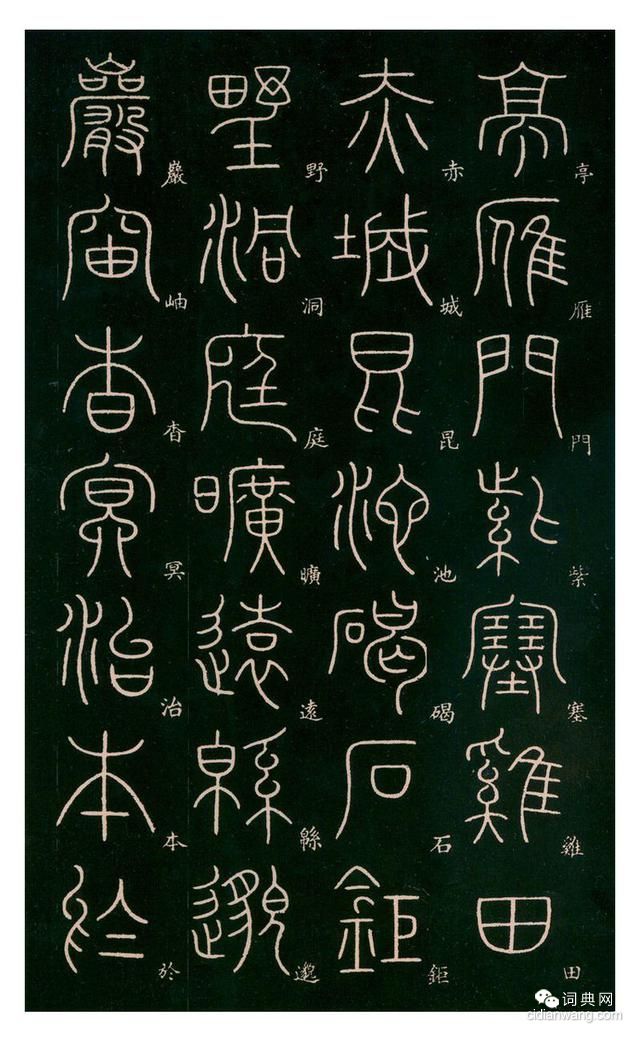 亭雁門紫塞雞田
亭雁門紫塞雞田
赤城昆池碣石鉅
赤城昆池碣石鉅
野洞庭曠遠緜邈
野洞庭曠遠緜邈
巖岫杳冥治本於
巖岫杳冥治本於
词典网
cidianwang.com